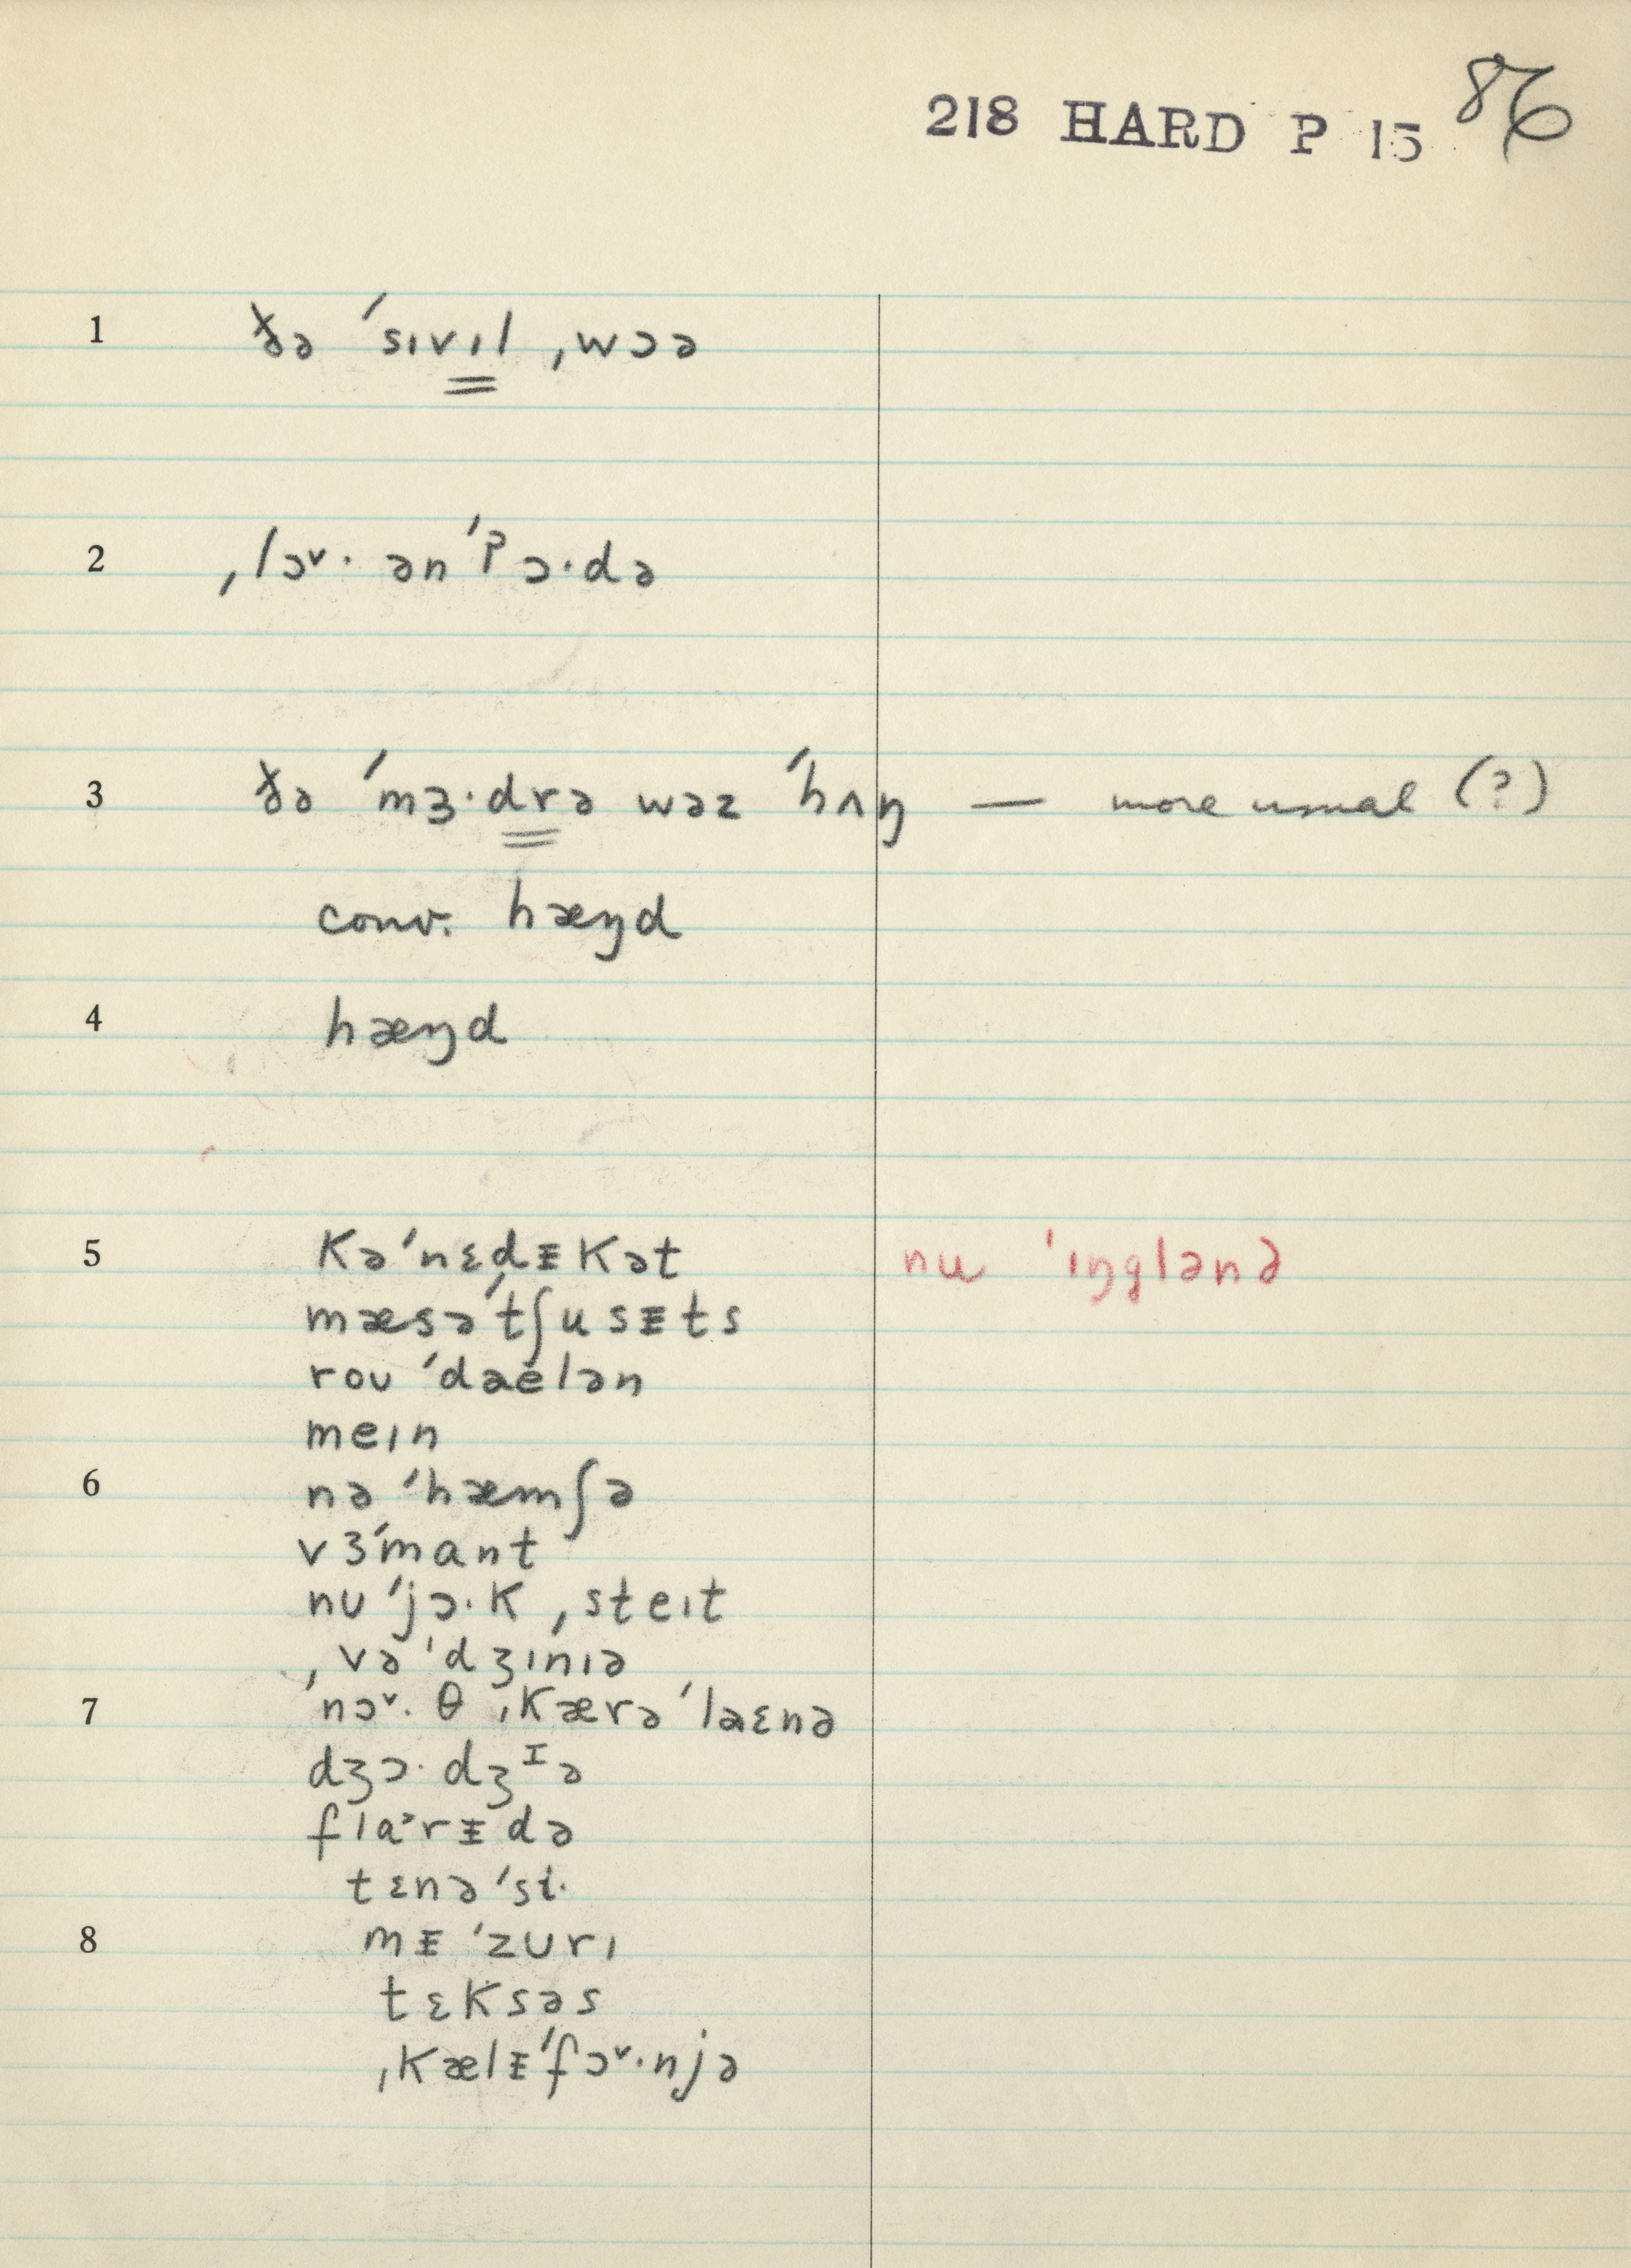 218 HARD P 15 86
1 ðə ˈsɪvɪl ˌwɔə
2 ˌlɔ˅· ənˈpɔ·də
3 ðə ˈmɜ·drə wəz ˈhʌŋ — more usual (?)
conv. hæŋd
4 hæŋd
5 kəˈnɛdᵻkət nu ˈɪŋglənd
mæsəˈtʃusᵻts
roʊ ˈdaelən
meɪn
6 nə ˈhæmʃə
vɜˈmant
nu ˈjɔ·k ˌsteɪt
ˌvə ˈdʒɪnɪə
7 ˈnɔ˅·θ ˌkærə ˈlaɛnə
dʒɔ·dʒᴵə
flɑ˃rᵻdə
tɛnəˈsi·
8 mᵻ ˈzʊrɪ
tɛksəs
ˌkælᵻˈfɔ˅·njə